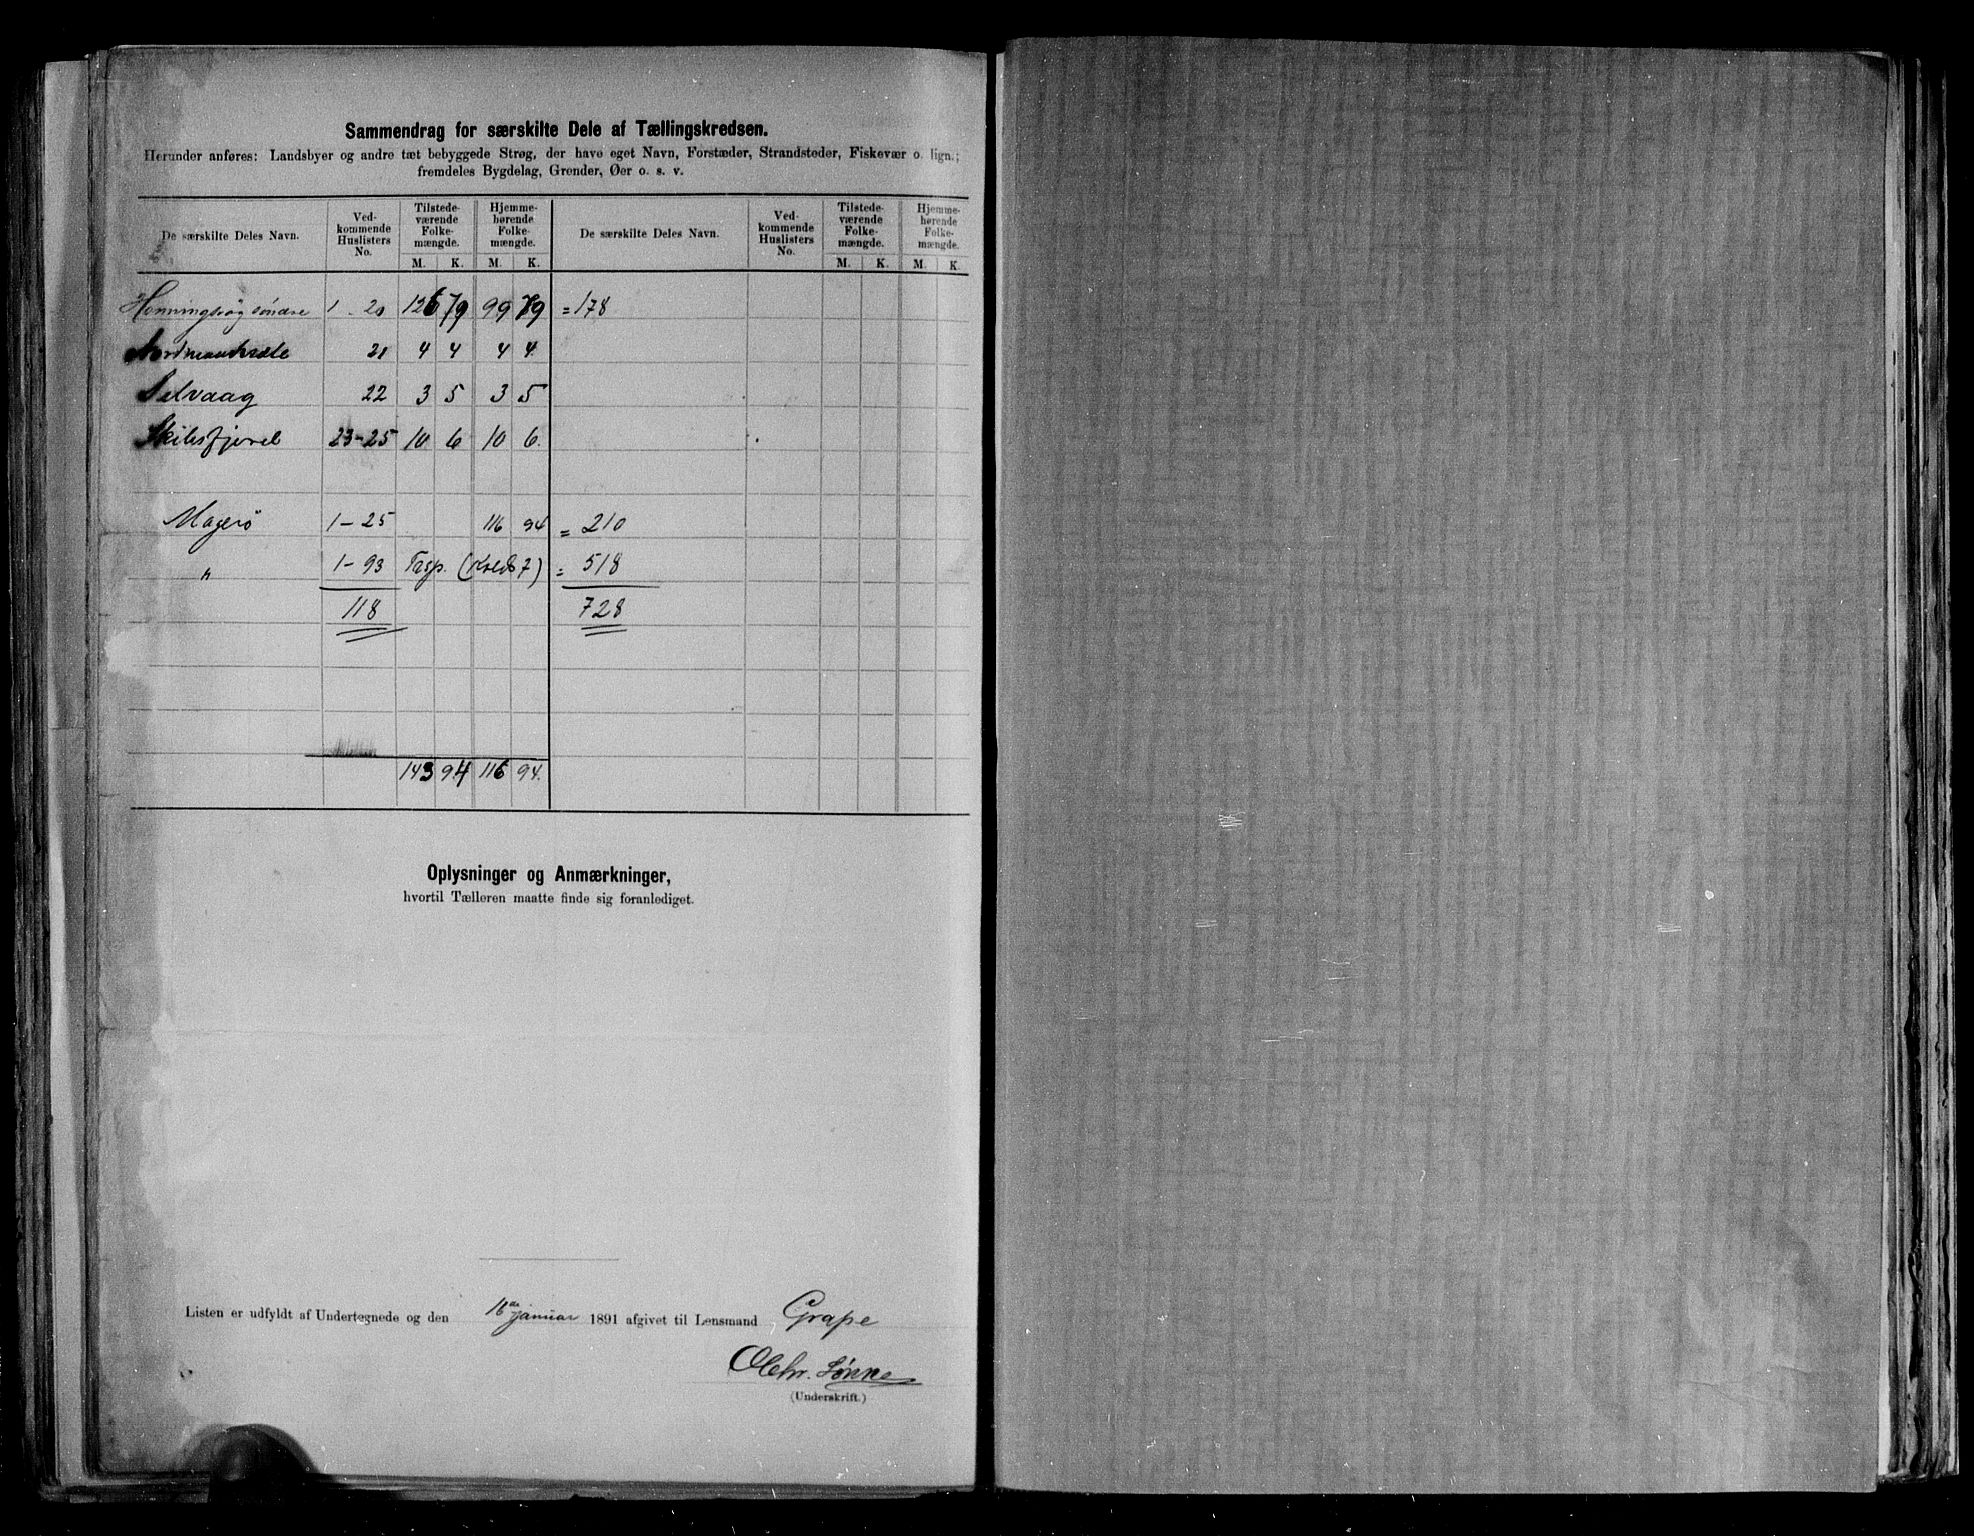 Sammendrag for særskilte Dele af Tællingskredsen.
Herunder anføres: Landsbyer og andre tæt bebyggede Strøg, der have eget Navn, Forstæder, Strandsteder, Fiskevær o. lign.;
fremdeles Bygdelag, Grender, Øer o. s. v.
De særskilte Deles Navn. Ved-kommende Huslisters No. Tilstede-værende Folke-mængde. Hjemme-hørende Folke-mængde. De særskilte Deles Navn. Ved-kommende Huslisters No. Tilstede-værende Folke-mængde. Hjemme-hørende Folke-mængde.
M. K. M. K. M. K. M. K.
Honningsvåg søndre 1 - 20 126 79 99 79 = 178
Nordmandsæle 21 4 4 4 4
Selvaag 22 3 5 3 5
Skibsfjord 23-25 10 6 10 6.
Magerö 1-25 116 94 = 210
" 1-93 (Kreds 7) = 518
118 728
143 94 116 94.
Oplysninger og Anmærkninger,
hvortil Tælleren maatte finde sig foranlediget.
Listen er udfyldt af Undertegnede og den 16de januar 1891 afgivet til Lensmand Grape
(Underskrift.)